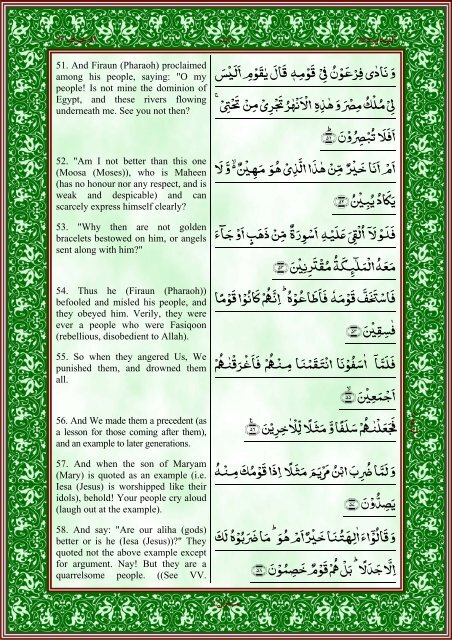 51. And Firaun (Pharaoh) proclaimed
among his people, saying: "O my
people! Is not mine the dominion of
Egypt, and these rivers flowing
underneath me. See you not then?
وَ نَادٰى فِرْعَوْنُ فِيْ قَوْمِهٖ قَالَ يٰقَوْمِ اَلَيْسَ
لِيْ مُلْكُ مِصْرَ وَ هٰذِهِ الْاَنْهٰرُ تَجْرِيْ مِنْ تَحْتِيْ ۚ
اَفَلَا تُبْصِرُوْنَ ﴿۵۱﴾
52. "Am I not better than this one
(Moosa (Moses)), who is Maheen
(has no honour nor any respect, and is
weak and despicable) and can
scarcely express himself clearly?
اَمْ اَنَا خَيْرٌ مِّنْ هٰذَا الَّذِيْ هُوَ مَهِيْنٌ ۙ۬ وَّ لَا
يَكَادُ يُبِيْنُ ﴿۵۲﴾
53. "Why then are not golden
bracelets bestowed on him, or angels
sent along with him?"
فَلَوْلَاۤ اُلْقِيَ عَلَيْهِ اَسْوِرَةٌ مِّنْ ذَهَبٍ اَوْ جَآءَ
مَعَهُ الْمَلٰٓئِكَةُ مُقْتَرِنِيْنَ ﴿۵۳﴾
54. Thus he (Firaun (Pharaoh))
befooled and misled his people, and
they obeyed him. Verily, they were
ever a people who were Fasiqoon
(rebellious, disobedient to Allah).
فَاسْتَخَفَّ قَوْمَهٗ فَاَطَاعُوْهُ ؕ اِنَّهُمْ كَانُوْا قَوْمًا
فٰسِقِيْنَ ﴿۵۴﴾
55. So when they angered Us, We
punished them, and drowned them
all.
فَلَمَّاۤ اٰسَفُوْنَا انْتَقَمْنَا مِنْهُمْ فَاَغْرَقْنٰهُمْ
اَجْمَعِيْنَ ﴿۵۵﴾
56. And We made them a precedent (as
a lesson for those coming after them),
and an example to later generations.
فَجَعَلْنٰهُمْ سَلَفًا وَّ مَثَلًا لِّلْاٰخِرِيْنَ ﴿۵۶﴾
57. And when the son of Maryam
(Mary) is quoted as an example (i.e.
Iesa (Jesus) is worshipped like their
idols), behold! Your people cry aloud
(laugh out at the example).
وَ لَمَّا ضُرِبَ ابْنُ مَرْيَمَ مَثَلًا اِذَا قَوْمُكَ مِنْهُ
يَصِدُّوْنَ ﴿۵۷﴾
58. And say: "Are our aliha (gods)
better or is he (Iesa (Jesus))?" They
quoted not the above example except
for argument. Nay! But they are a
quarrelsome people. ((See VV.
وَ قَالُوْۤا ءَاٰلِهَتُنَا خَيْرٌ اَمْ هُوَ ؕ مَا ضَرَبُوْهُ لَكَ
اِلَّا جَدَلًا ؕ بَلْ هُمْ قَوْمٌ خَصِمُوْنَ ﴿۵۸﴾